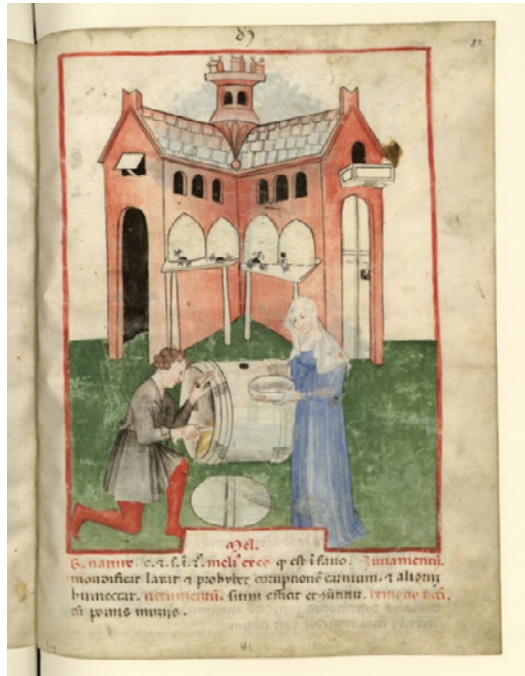 82
Mel.
nature c. & s. i melior ex eo q est i fauo. Juuamentū.
mondificat laxat & prohibet corruptionē carnium. & alioru
humectat. nocumentū. sitim efficit remotio noc̄i.
cū pomis muzis.